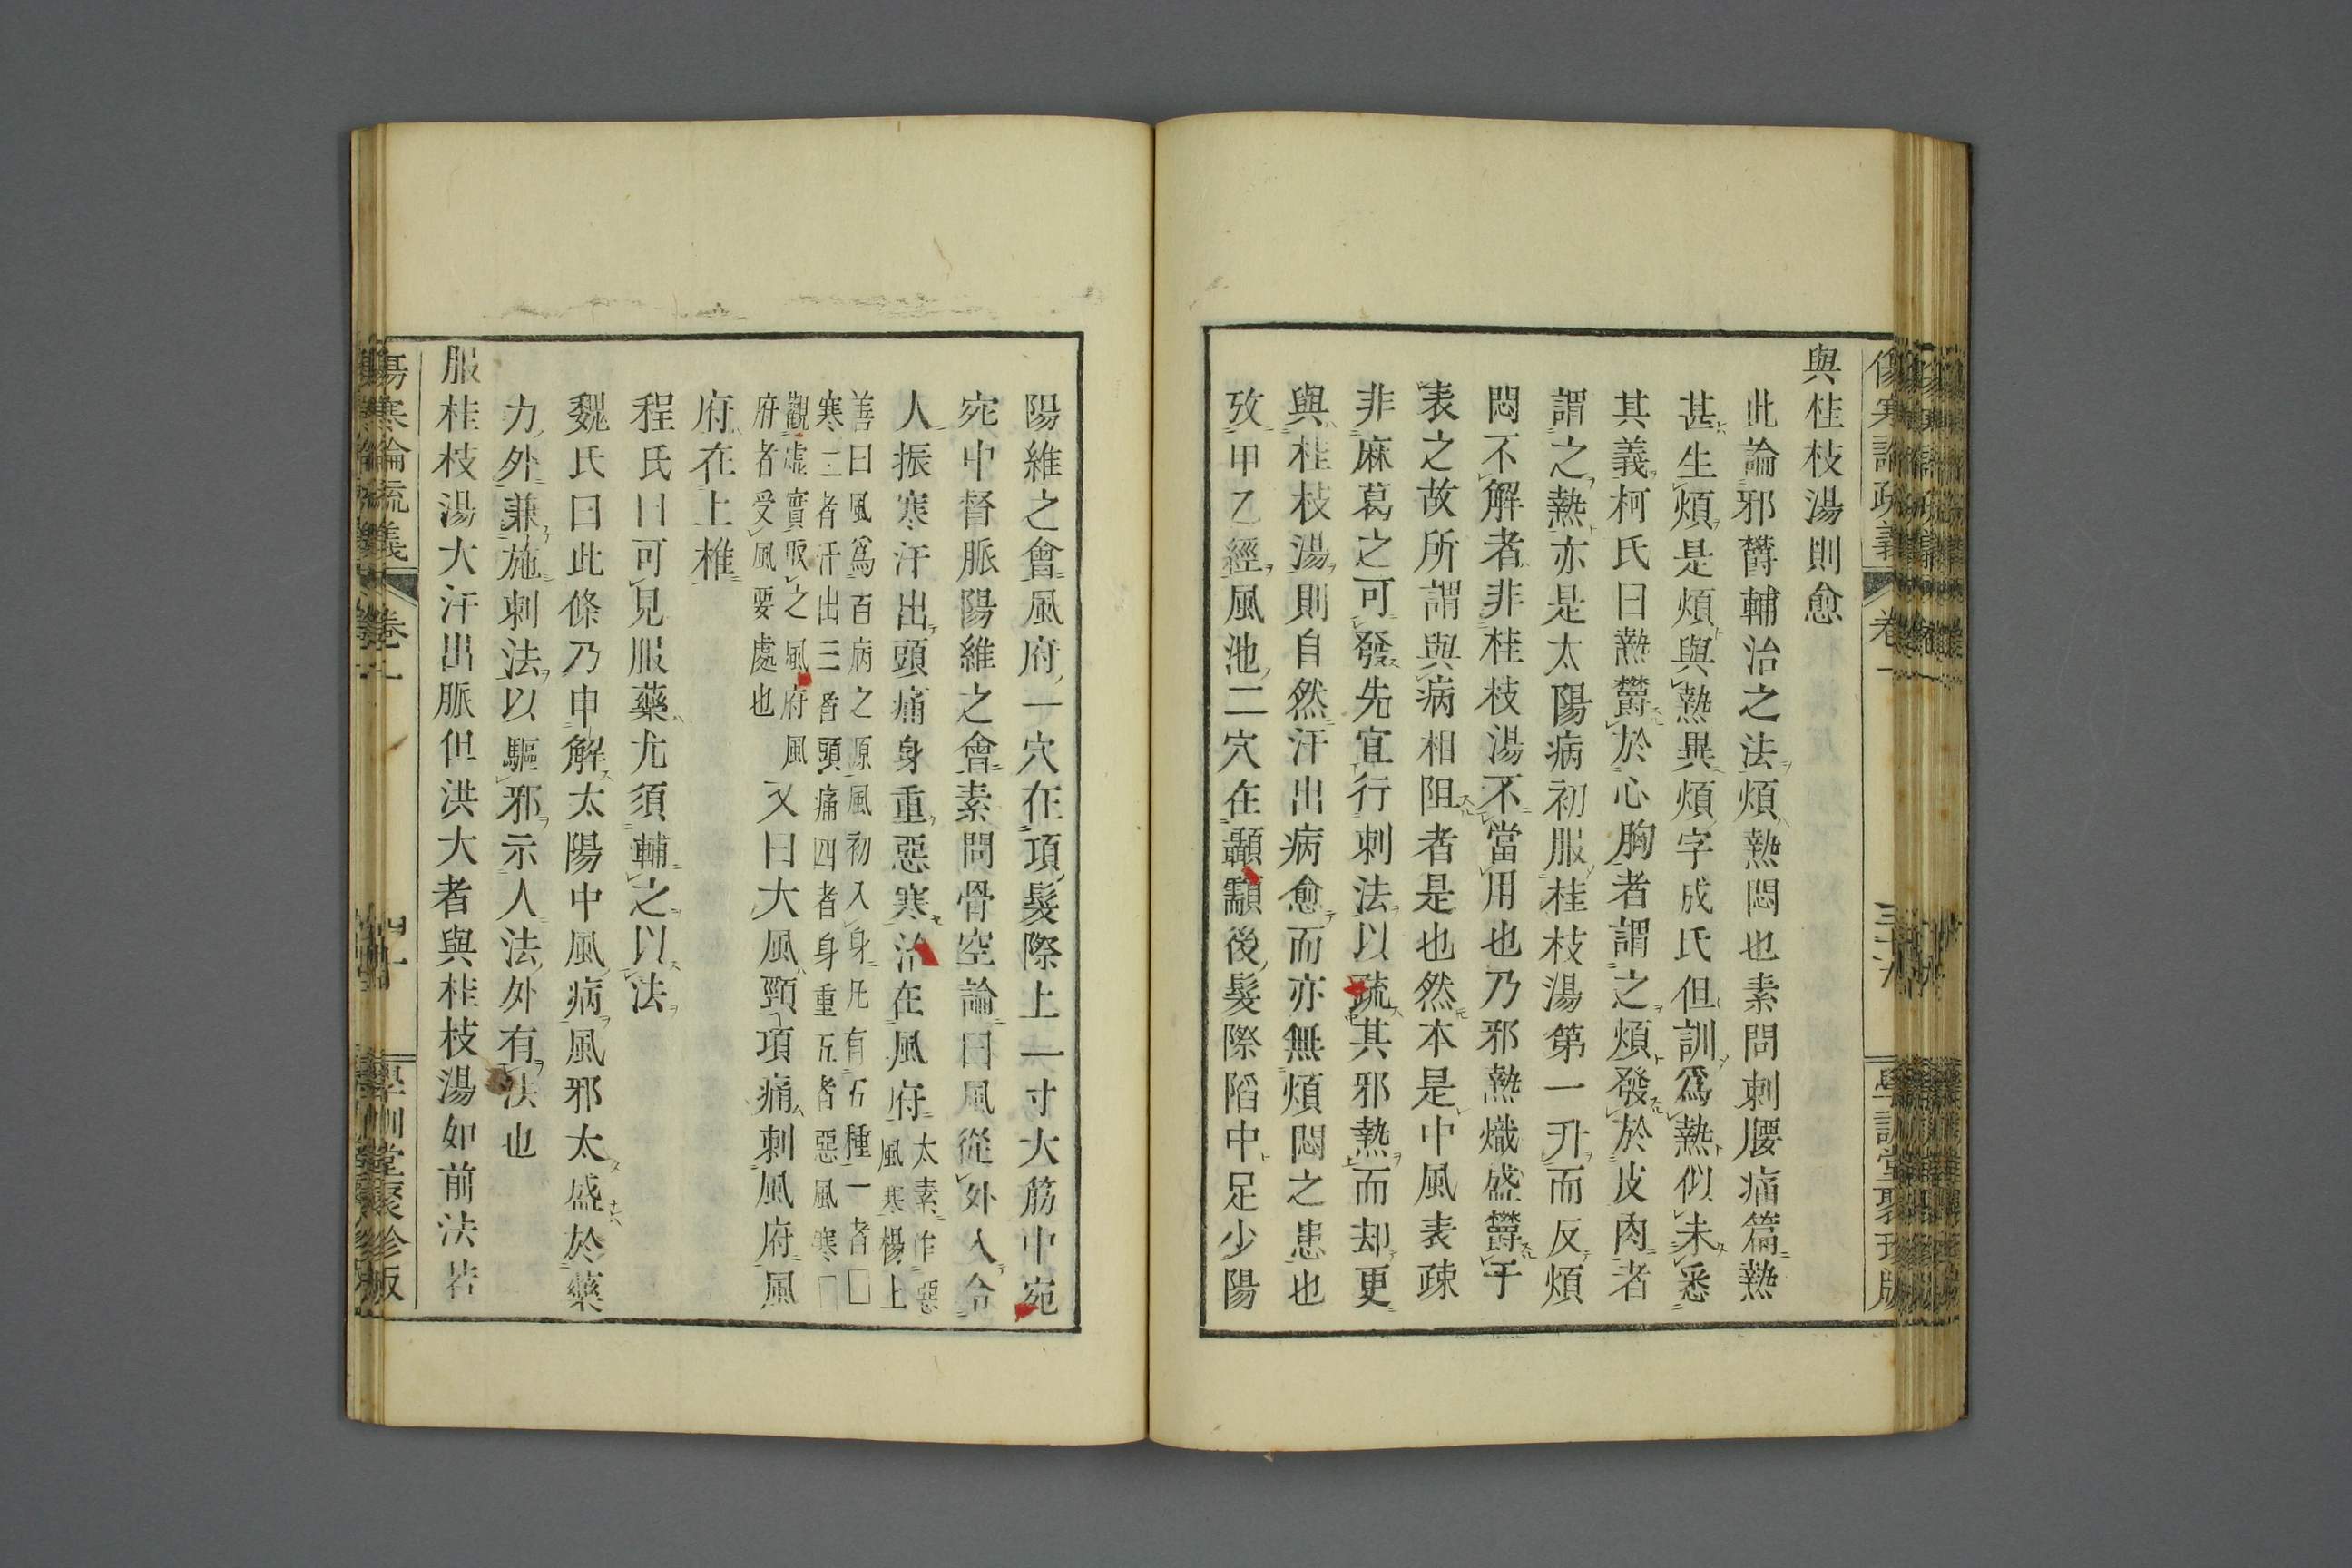 與桂枝湯則愈
此論邪欝輔治之法煩熱悶也素問刺腰痛篇熱
甚生煩是煩與熱異煩字成氏但訓爲熱似未悉
其義柯氏曰熱欝於心胸者謂之煩發於皮肉者
謂之熱亦是太陽病初服桂枝湯第一升而反煩
悶不解者非桂枝湯不當用也乃邪熱熾盛欝于
表之故所謂與病相阻者是也然本是中風表疎
非麻葛之可發先宜行刺法以疏其邪熱而却更
與桂枝湯則自然汗出病愈而亦無煩悶之患也
攷甲乙經風池二穴在顳顬後髮際陷中足少陽
陽維之會風府一穴在項髮際上一寸大筋中宛
宛中督脈陽維之會素問骨空論曰風從外入令
人振寒汗出頭痛身重惡寒治在風府太素作惡
風寒楊上
善曰風爲百病之源風初入身凡有五種一者□
寒二者汗出三者頭痛四者身重五者惡風寒□
觀虛實取之風府風
府者受風要處也
又曰大風頸項痛刺風府風
府在上椎
程氏曰可見服藥尤須輔之以法
魏氏曰此條乃申解太陽中風病風邪太盛於藥
力外兼施刺法以驅邪示人法外有法也
服桂枝湯大汗出脈但洪大者與桂枝湯如前法若
傷寒論疏義 卷一 四十 學訓堂聚珍版